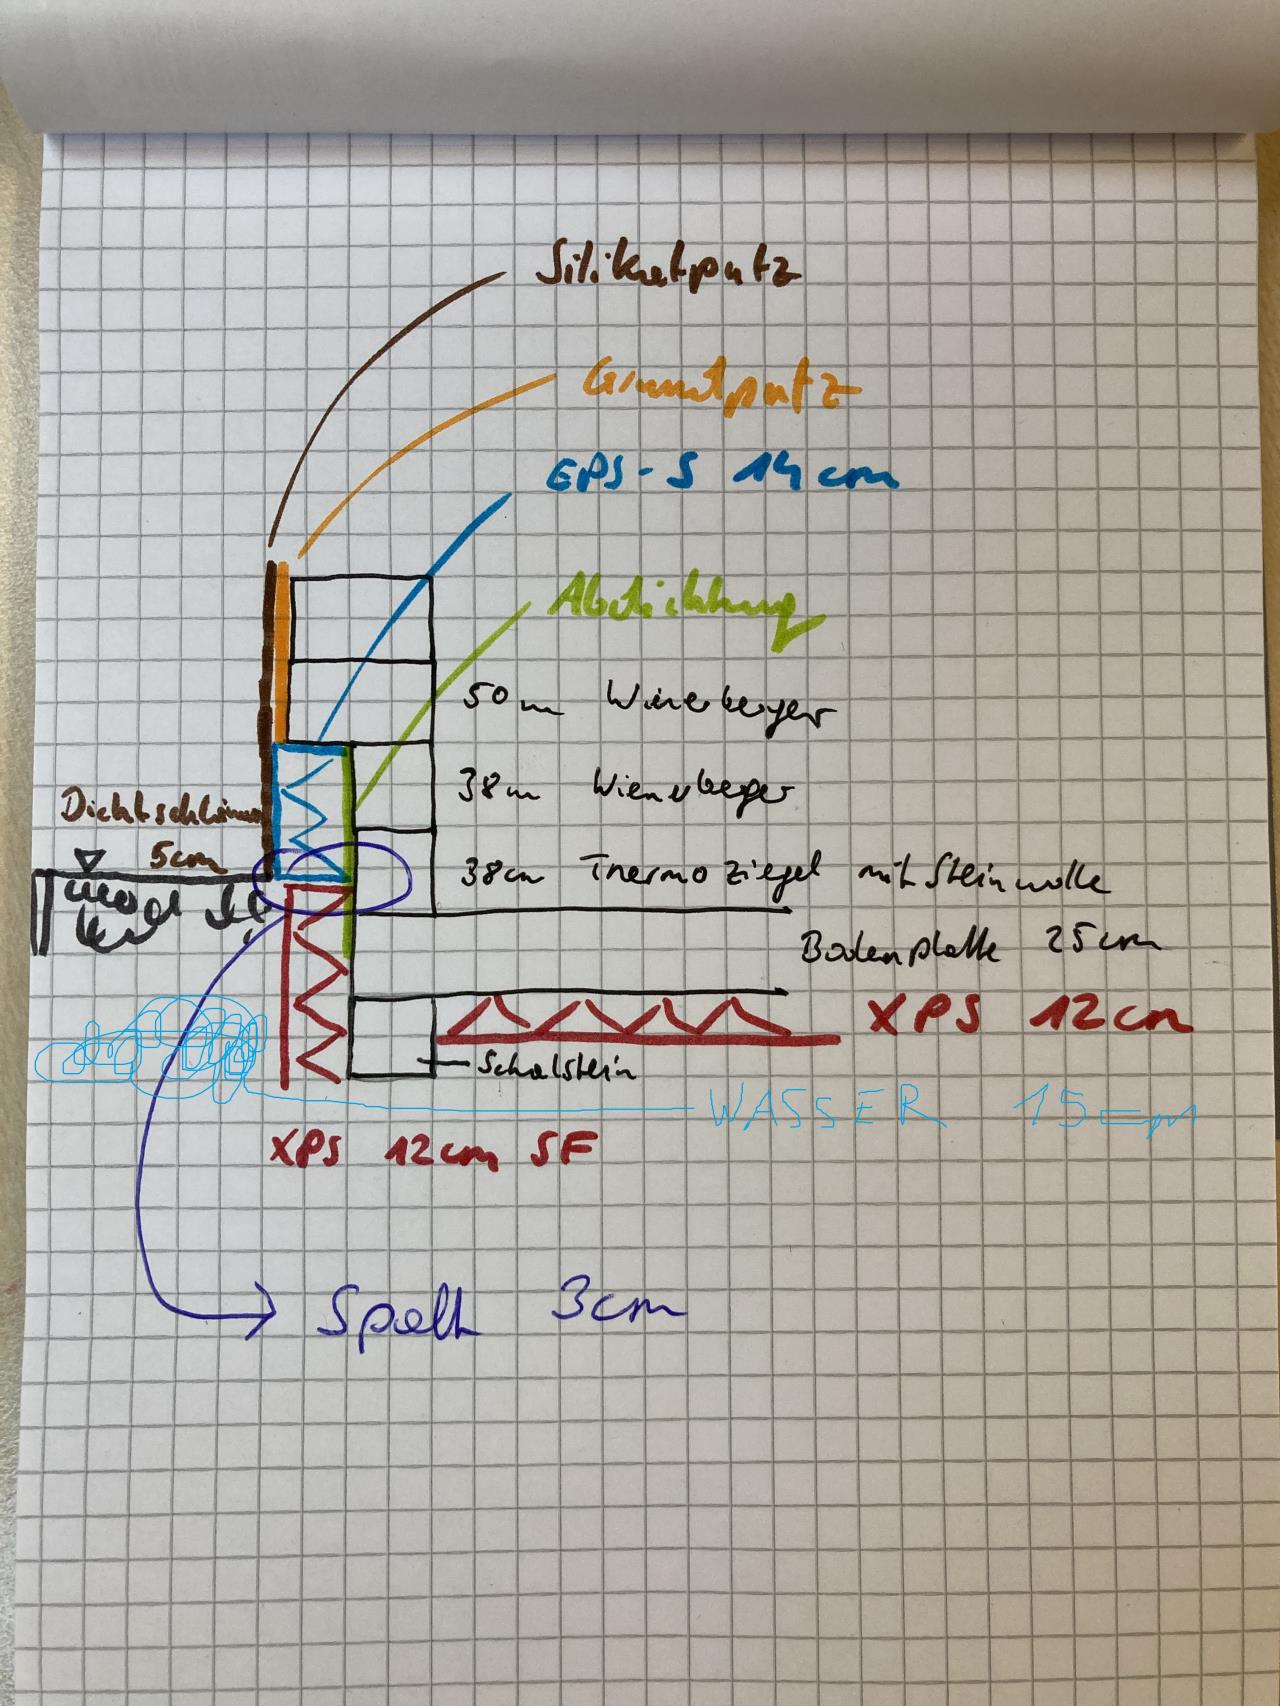 Silikatputz
Grundputz
EPS-S 14cm
Abdichtung
50cm Wienerberger
38cm Wienerberger
Dichtschlämme
5cm
38cm Thermoziegel mit Steinwolle
Bodenplatte 25cm
XPS 12cm
Schalstein
WASSER 15cm
XPS 12cm SF
Spalt 3cm